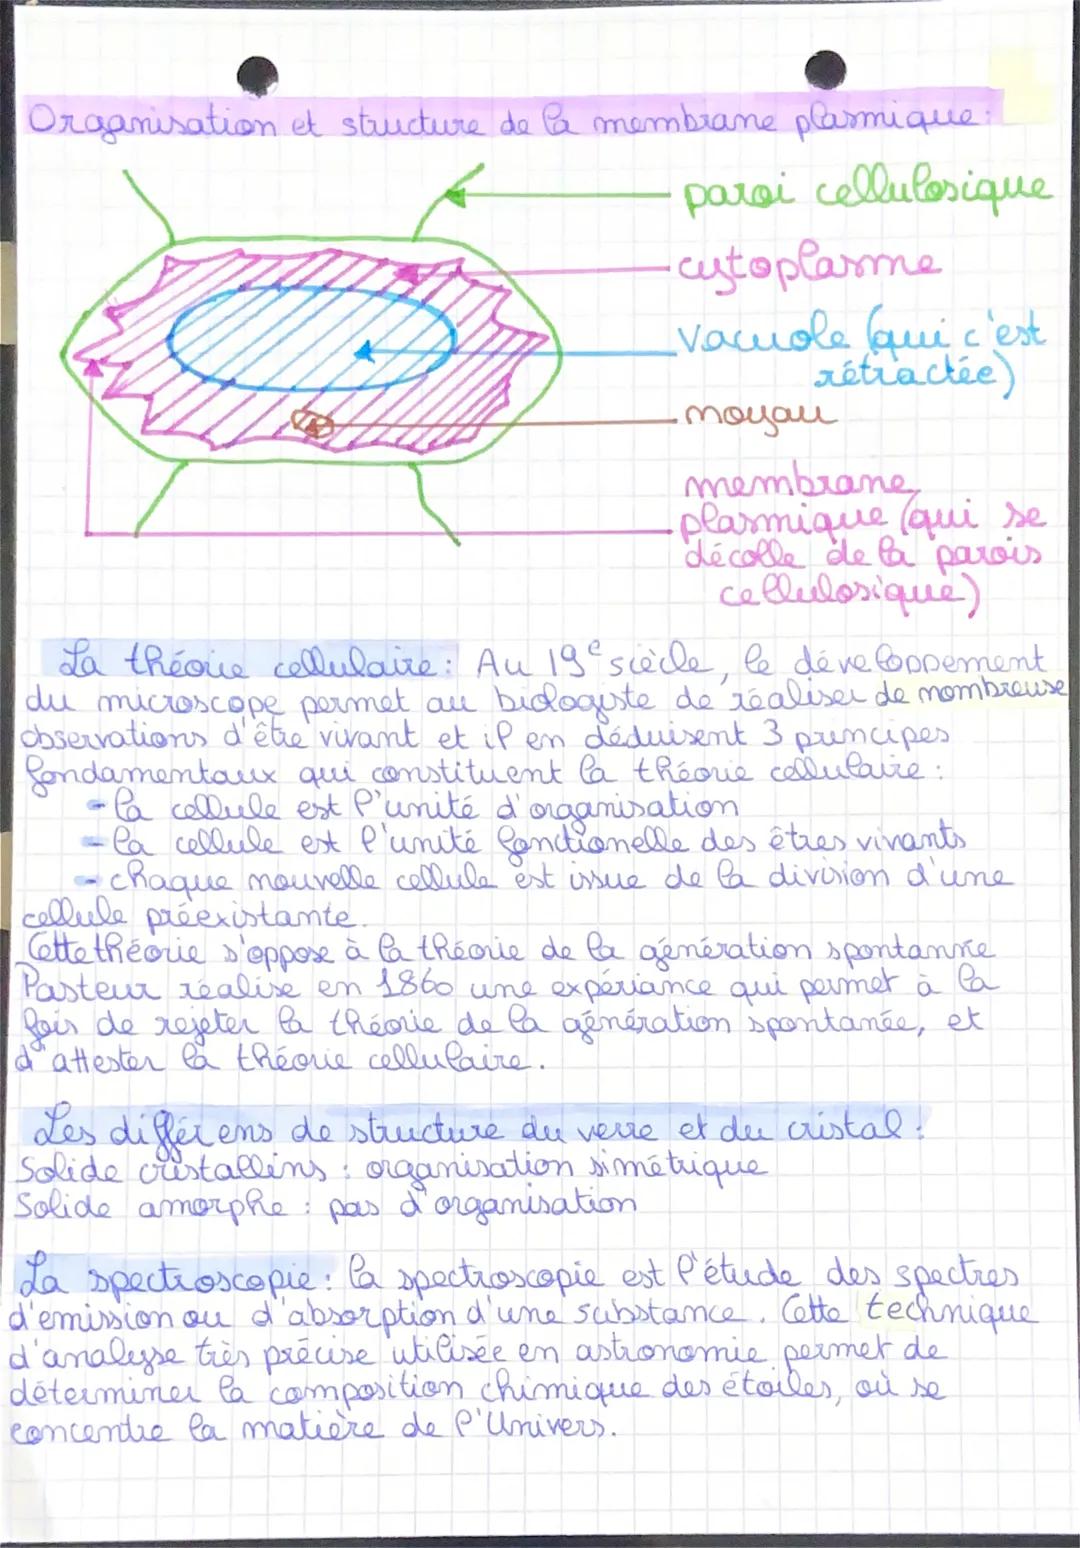 Organisation et structure de la membrane plasmique :
paroi cellulosique
cytoplasme
vacuole (qui c'est
rétractée)
noyau
membrane
plasmique (qui se
décolle de la parois
cellulosique)
La théorie cellulaire : Au 19e siècle, le développement
du microscope permet au biologiste de réaliser de nombreuse
observations d'être vivant et il en déduisent 3 principes
fondamentaux qui constituent la théorie cellulaire :
- la cellule est l'unité d'organisation
- la cellule est l'unité fonctionelle des êtres vivants
- chaque nouvelle cellule est issue de la division d'une
cellule préexistante.
Cette théorie s'oppose à la théorie de la génération spontannée
Pasteur réalise en 1860 une expériance qui permet à la
fois de rejeter la théorie de la génération spontanée, et
d'attester la théorie cellulaire.
Les différens de structure du verre et du cristal :
Solide cristallins : organisation simétrique
Solide amorphe : pas d'organisation
La spectroscopie : la spectroscopie est l'étude des spectres
d'émission ou d'absorption d'une substance. Cette technique
d'analyse très précise utilisée en astronomie permet de
déterminer la composition chimique des étoiles, où se
concentre la matière de l'Univers.